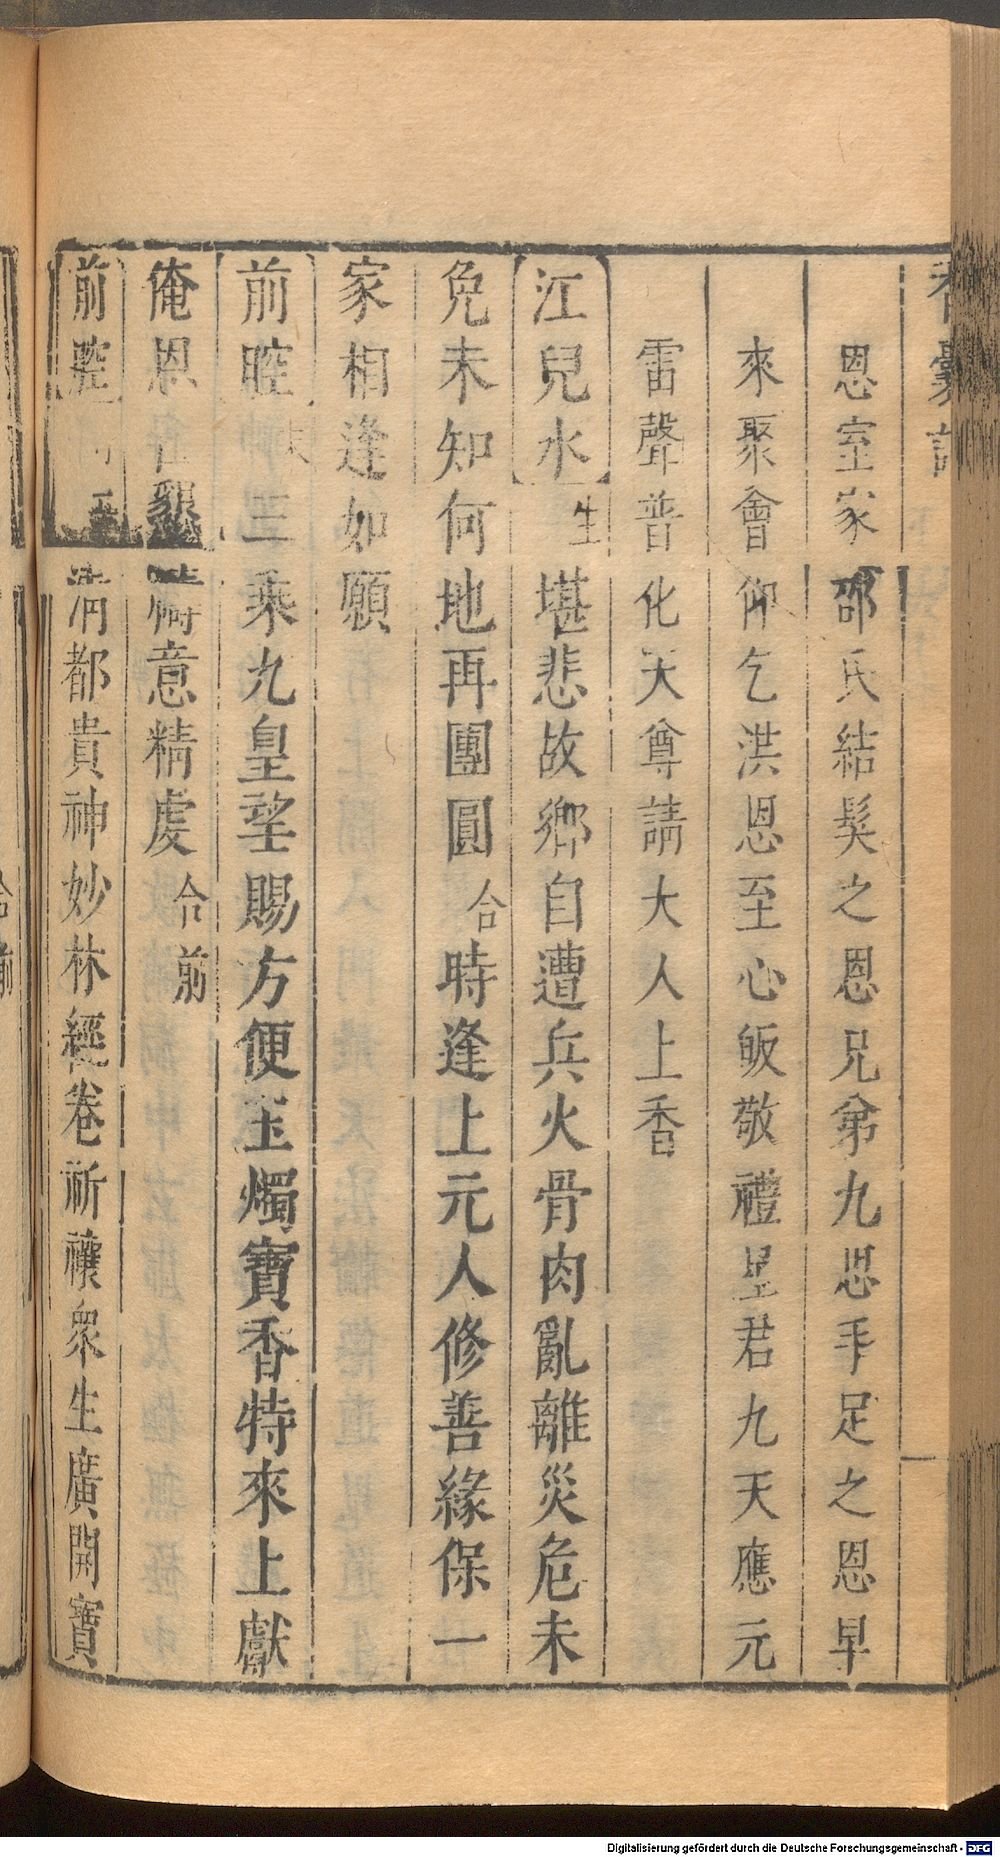 香囊記
恩室家邵氏結髮之恩兄弟九思手足之恩早
來聚會仰乞洪恩至心皈敬禮星君九天應元
雷聲普化天尊請大人上香
江兒水 生 堪悲故鄉自遭兵火骨肉亂離災危未
免未知何地再團圓 合 時逢上元人修善緣保一
家相逢如願
前腔 三乘九皇望賜方便玉燭寶香特來上獻
俺恩 意精虔 合前
前腔 清都貴神妙林經卷祈禳衆生廣開寶
合前
Digitalisierung gefördert durch die Deutsche Forschungsgemeinschaft - DFG